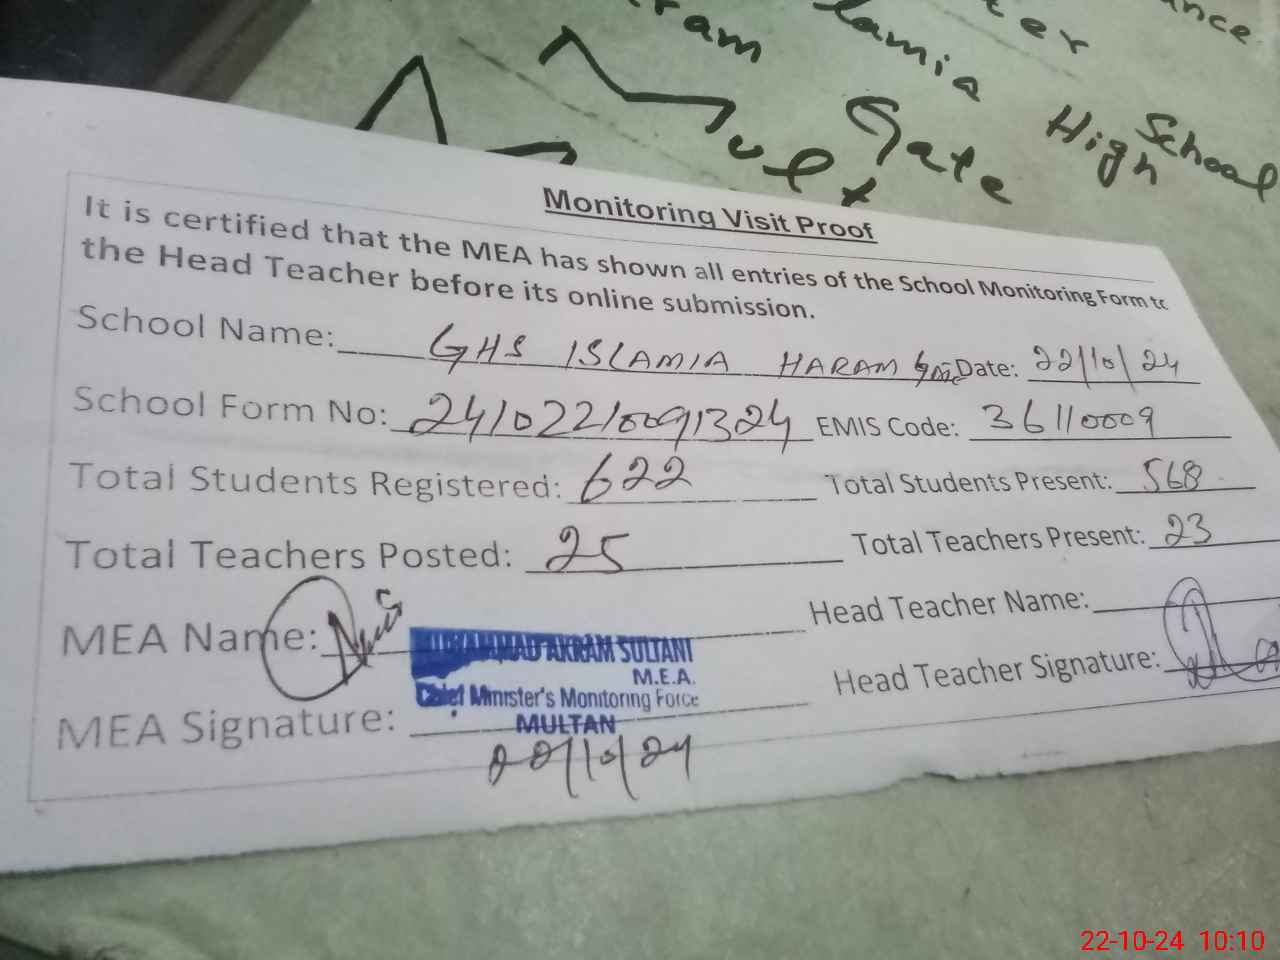 ter
lamia High School
Gate
Mult
Monitoring Visit Proof
It is certified that the MEA has shown all entries of the School Monitoring Form to
the Head Teacher before its online submission.
School Name: GHS ISLAMIA HARAM Gate Date: 22/10/24
School Form No: 24102210091324 EMIS Code: 36110009
Total Students Registered: 622 Total Students Present: 568
Total Teachers Posted: 25 Total Teachers Present: 23
MEA Name: Head Teacher Name:
MUHAMMAD AKRAM SULTANI
M.E.A.
Chief Minister's Monitoring Force
MULTAN
MEA Signature: Head Teacher Signature:
22/10/24
22-10-24 10:10